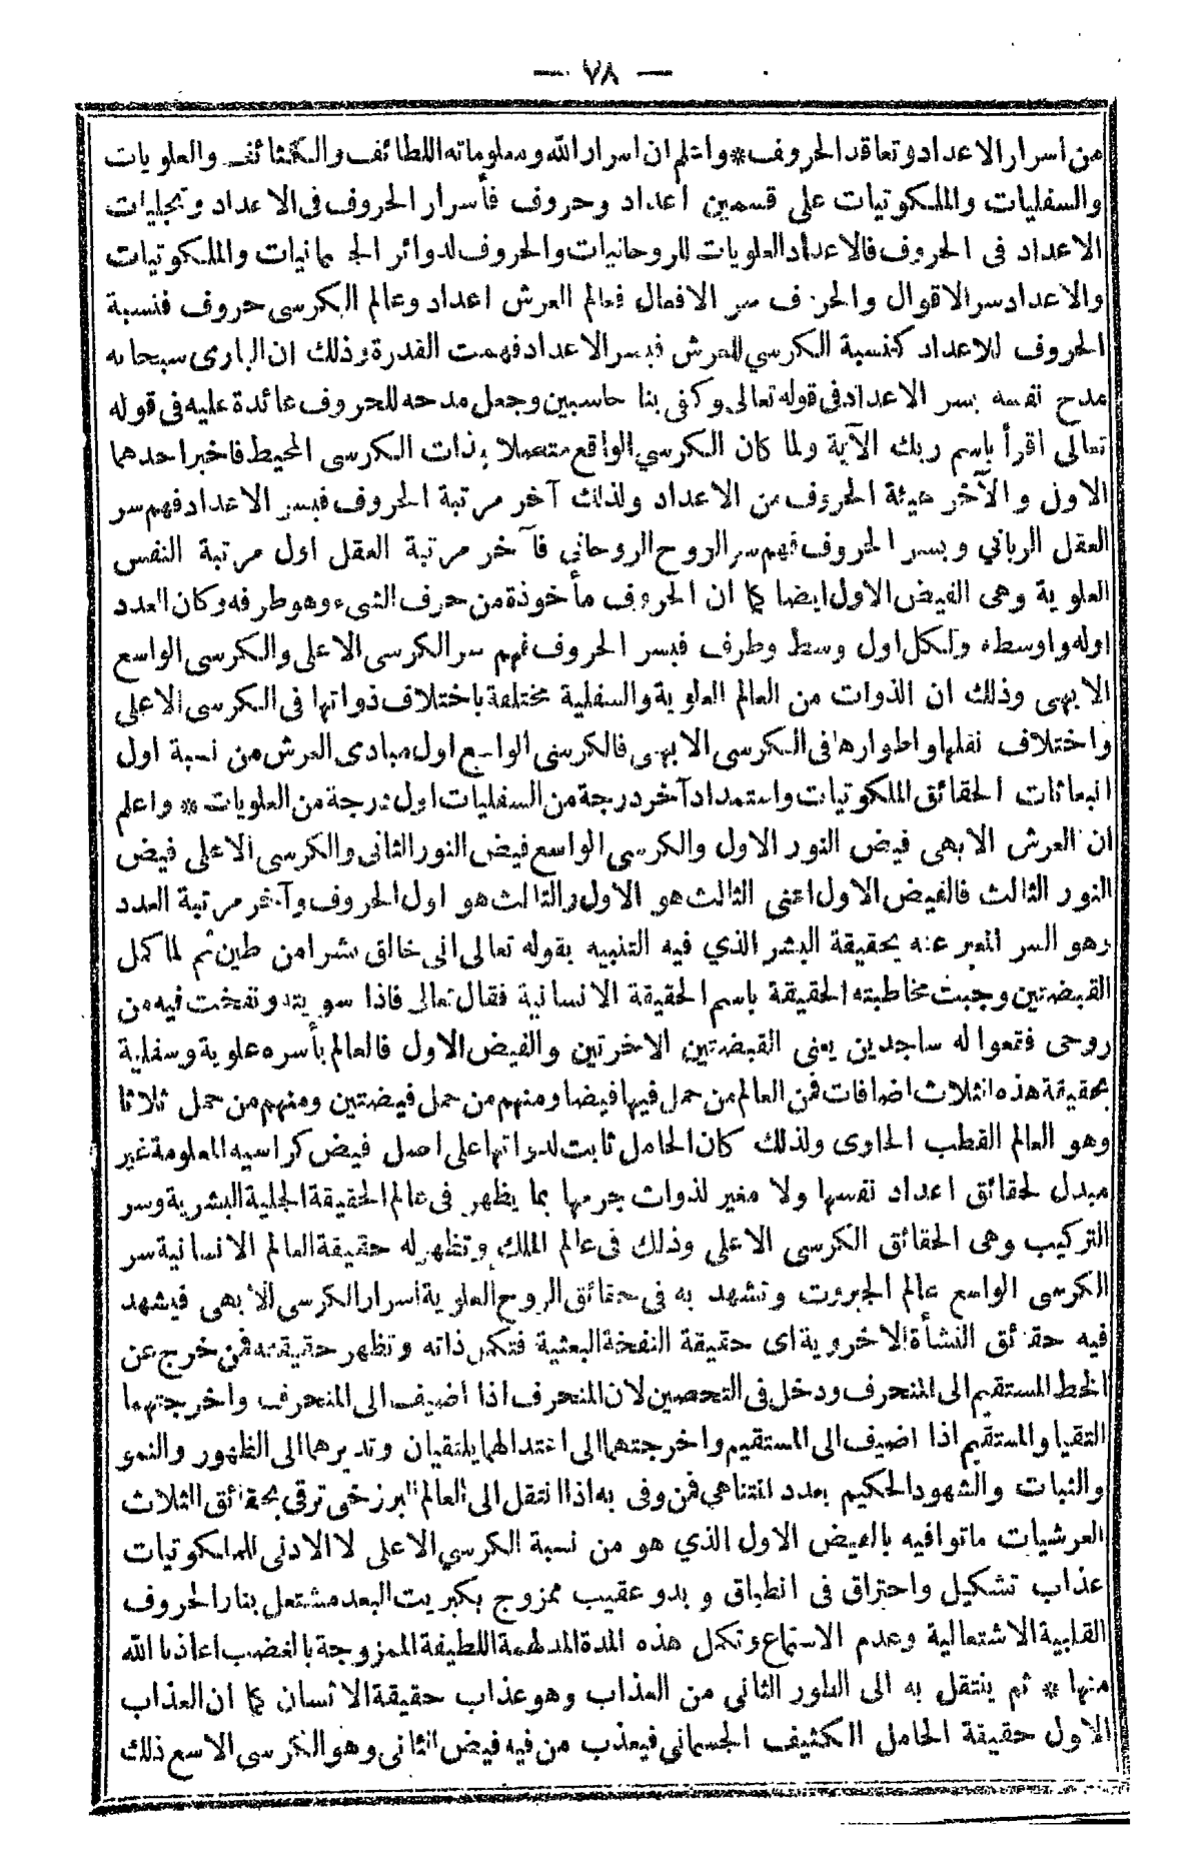 — ٧٨ —
من اسرار الاعداد وتعاقد الحروف * واعلم ان اسرار الله ومعلوماته اللطائف والكثائف والعلويات
والسفليات والملكوتيات على قسمين اعداد وحروف فأسرار الحروف فى الاعداد وتجليات
الاعداد فى الحروف فالاعداد العلويات للروحانيات والحروف لدوائر الجسمانيات والملكوتيات
والاعداد سر الاقوال والحروف سر الافعال فعالم العرش اعداد وعالم الكرسى حروف فنسبة
الحروف للاعداد كنسبة الكرسي للعرش فبسر الاعداد فهمت القدرة وذلك ان البارى سبحانه
مدح نفسه بسر الاعداد فى قوله تعالى وكفى بنا حاسبين وجعل مدحه للحروف عائدة عليه فى قوله
تعالى اقرأ باسم ربك الآية ولما كان الكرسي الواقع متصلا بذات الكرسى المحيط فاخبر احدهما
الاول والآخر هيئة الحروف من الاعداد ولذلك آخر مرتبة الحروف فبسر الاعداد فهم سر
العقل الرباني وبسر الحروف فهم سر الروح الروحانى فآخر مرتبة العقل اول مرتبة النفس
العلوية وهى الفيض الاول ايضا كما ان الحروف مأخوذة من حرف الشىء وهو طرفه وكان العدد
اوله واوسطه ولكل اول وسط وطرف فبسر الحروف فهم سر الكرسى الاعلى والكرسى الواسع
الابهى وذلك ان الذوات من العالم العلوية والسفلية مختلفة باختلاف ذواتها فى الكرسى الاعلى
واختلاف نقلها واطوارها فى الكرسى الابهى فالكرسى الواسع اول مبادى العرش من نسبة اول
انبعاثات الحقائق الملكوتيات واستمداد آخر درجة من السفليات اول درجة من العلويات * واعلم
ان العرش الابهى فيض النور الاول والكرسى الواسع فيض النور الثانى والكرسى الاعلى فيض
النور الثالث فالفيض الاول اعنى الثالث هو الاول والثالث هو اول الحروف وآخر مرتبة العدد
وهو السر المعبر عنه بحقيقة البشر الذي فيه التنبيه بقوله تعالى انى خالق بشرا من طين ثم لما كمل
القبضتين وجبت مخاطبته الحقيقة باسم الحقيقة الانسانية فقال تعالى فاذا سويته ونفخت فيه من
روحى فقعوا له ساجدين يعنى القبضتين الاخرتين والفيض الاول فالعالم بأسره علوية وسفلية
بحقيقة هذه الثلاث اضافات فمن العالم من حمل فيها فيضا ومنهم من حمل فيضتين ومنهم من حمل ثلاثا
وهو العالم القطب الحاوى ولذلك كان الحامل ثابت لذواتها على اصل فيض كراسيه المعلومة غير
مبدل لحقائق اعداد نفسها ولا مغير لذوات جرمها بما يظهر فى عالم الحقيقة الجلية البشرية وسر
التركيب وهى الحقائق الكرسى الاعلى وذلك فى عالم الملك وتظهر له حقيقة العالم الانسانية سر
الكرسى الواسع عالم الجبروت وتشهد به فى حقائق الروح العلوية اسرار الكرسى الابهى فيشهد
فيه حقائق النشأة الاخروية اى حقيقة النفخة البعثية فتكمل ذاته وتظهر حقيقته فمن خرج عن
الخط المستقيم الى المنحرف ودخل فى التحصين لان المنحرف اذا اضيف الى المنحرف واخرجتهما
التقيا والمستقيم اذا اضيف الى المستقيم واخرجتهما الى اعتدالهما يلتقيان وتديرهما الى الظهور والنمو
والنبات والشهود الحكيم بعدد المتناهي فمن وفى به اذا انتقل الى العالم البرزخى ترقى بحقائق الثلاث
العرشيات ماتوافيه بالفيض الاول الذي هو من نسبة الكرسي الاعلى لا الادنى للملكوتيات
عذاب تشكيل واحتراق فى انطباق وبدو عقيب ممزوج بكبريت البعد مشتعل بنار الحروف
القلبية الاشتعالية وعدم الاستماع وتكمل هذه المدة المدلهمة اللطيفة الممزوجة بالغضب اعاذنا الله
منها * ثم ينتقل به الى الطور الثانى من العذاب وهو عذاب حقيقة الانسان كما ان العذاب
الاول حقيقة الحامل الكثيف الجسمانى فيعذب من فيه فيض الثانى وهو الكرسى الاسع ذلك